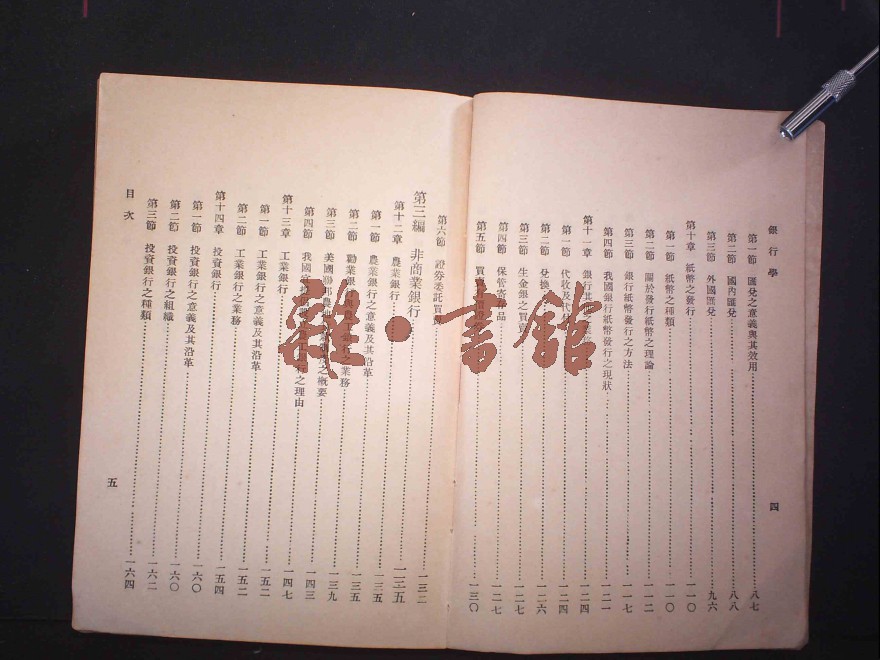 銀行學
第一節 匯兌之意義與其效用 八七
第二節 國內匯兌 八八
第三節 外國匯兌 九六
第十章 紙幣之發行 一一〇
第一節 紙幣之種類 一一〇
第二節 關於發行紙幣之理論 一一二
第三節 銀行紙幣發行之方法 一一七
第四節 我國銀行紙幣發行之現狀 一二一
第十一章 銀行其他之業務 一二四
第一節 代收及代付 一二四
第二節 兌換 一二六
第三節 生金銀之買賣 一二七
第四節 保管寄存品 一二七
第五節 買賣 一三〇
四
第六節 證券委託買賣 一三二
第三編 非商業銀行
第十二章 農業銀行 一三五
第一節 農業銀行之意義及其沿革 一三五
第二節 勸業銀行及農工銀行之業務 一三五
第三節 美國聯邦農地之概要 一三九
第四節 我國之理由 一四三
第十三章 工業銀行 一四七
第一節 工業銀行之意義及其沿革 一五二
第二節 工業銀行之業務 一五二
第十四章 投資銀行 一五四
第一節 投資銀行之意義及其沿革 一六〇
第二節 投資銀行之組織 一六〇
第三節 投資銀行之種類 一六二
目次 一六四
五
雜·書館